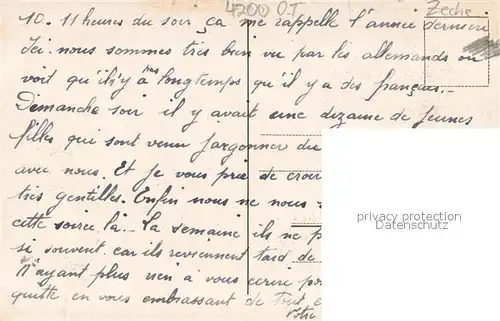 4200 O.T Zeche
10.11 heures du soir ça me rappelle l'année derniere
Ici nous sommes tres bien vu par les allemands on
voit qu'il y'a tres longtemps qu'il y a des français.-
Dimanche soir il y avait une dizaine de jeunes
filles qui sont venu jargonner du
avec nous. Et je vous prie de croir
très gentilles. Enfin nous ne nous
cette soirée là. La semaine ils ne p
si souvent car ils reviennent tard de
N'ayant plus rien a vous ecrire po
quitte en vous embrassant de Tout c
Votre
privacy protection
Datenschutz